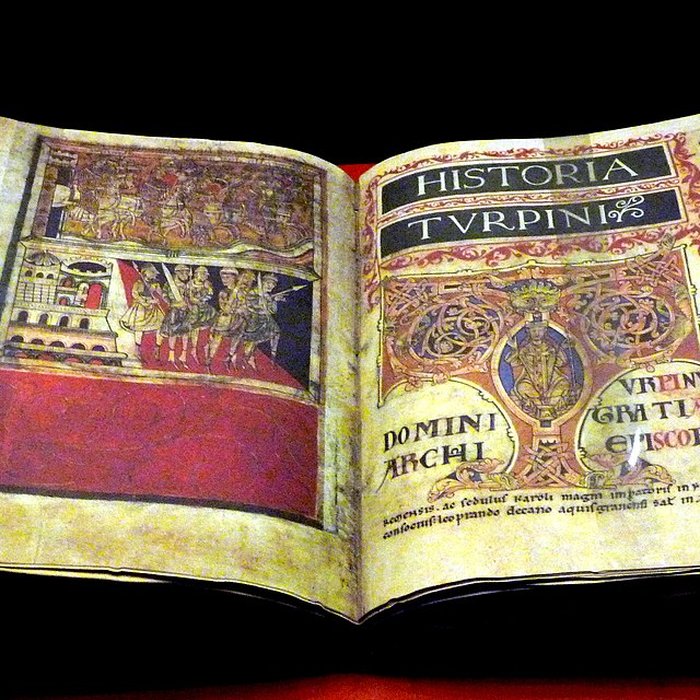 HISTORIA
TVRPINI
DOMINI
VRPIN
ARCHI
GRATIA
EPISCO
REMENSIS. ac sedulus karoli magni impatoris in
consocius. leoprando decano aquisgranensi sat